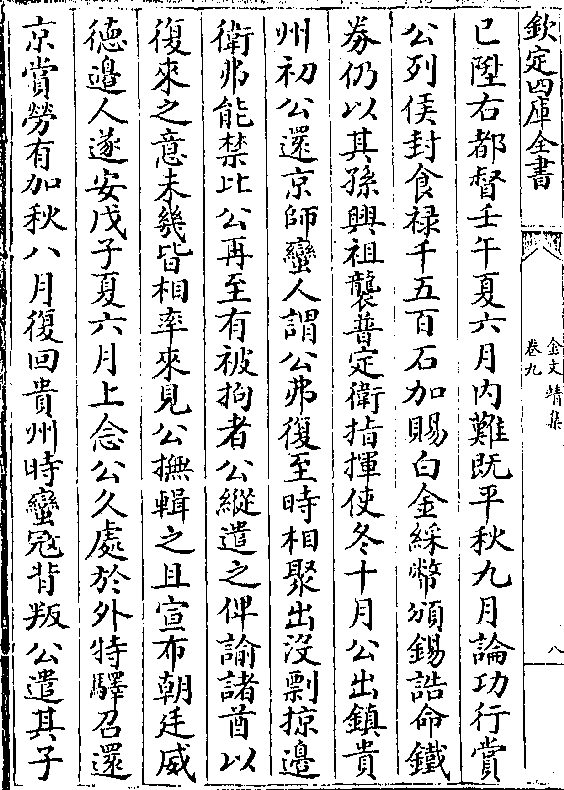 欽定四庫全書
金文靖集
卷九
八
已陞右都督壬午夏六月内難既平秋九月論功行賞
公列侯封食禄千五百石加賜白金綵幣頒錫誥命鐵
券仍以其孫興祖襲普定衛指揮使冬十月公出鎮貴
州初公還京師蠻人謂公弗復至時相聚出没剽掠邊
衛弗能禁比公再至有被拘者公縱遣之俾諭諸酋以
復來之意未幾皆相率來見公撫輯之且宣布朝廷威
徳邉人遂安戊子夏六月上念公久處於外特驛召還
京賞勞有加秋八月復回貴州時蠻冦背叛公遣其子